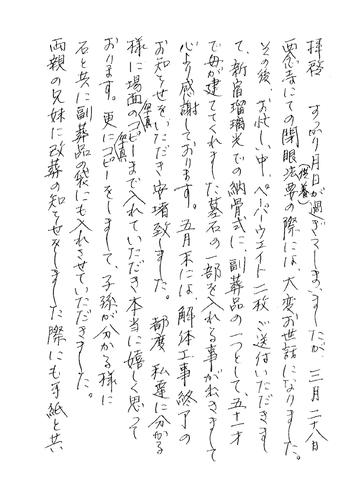 拝啓　すっかり月日が過ぎてしまいましたが、三月二十八日
恩念寺にての閉眼法要(供養)の際には、大変お世話になりました。
その後、お忙しい中、ペーパーウエイト二枚ご送付いただきまし
て、新宿瑠璃光での納骨式に、副葬品の一つとして、五十一才
で母が建ててくれました墓石の一部を入れる事が出来まして
心より感謝しております。五月末には、解体工事終了の
お知らせをいただき安堵致しました。都度、私達に分かる
様に場面の(写真)コピーまで入れていただき本当に嬉しく思って
おります。更に(写真)コピーをしまして、子孫が分かる様に
石と共に副葬品の袋にも入れさせていただきました。
両親の兄妹に改葬の知らせをしました際にも手紙と共